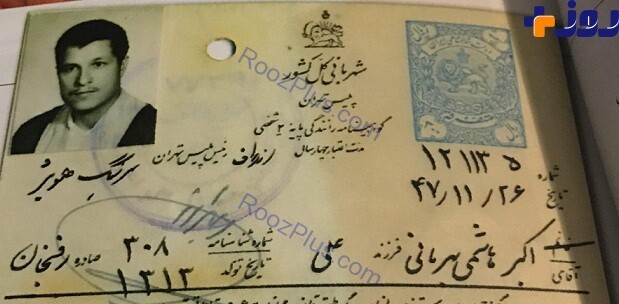 روز
شهربانی کل کشور
پلیس تهران
گواهینامه رانندگی پایه ۲ شخصی
مدت اعتبار چهار سال
از طرف رئیس پلیس تهران
سرهنگ
شماره ۱۲۱۱۳۵
تاریخ ۴۷/۱۱/۲۶
آقای اکبر هاشمی بهرمانی فرزند علی شماره شناسنامه ۳۰۸ صادره رفسنجان
تاریخ تولد ۱۳۱۳
RoozPlus.com
RoozPlus.com
RoozPlus.com